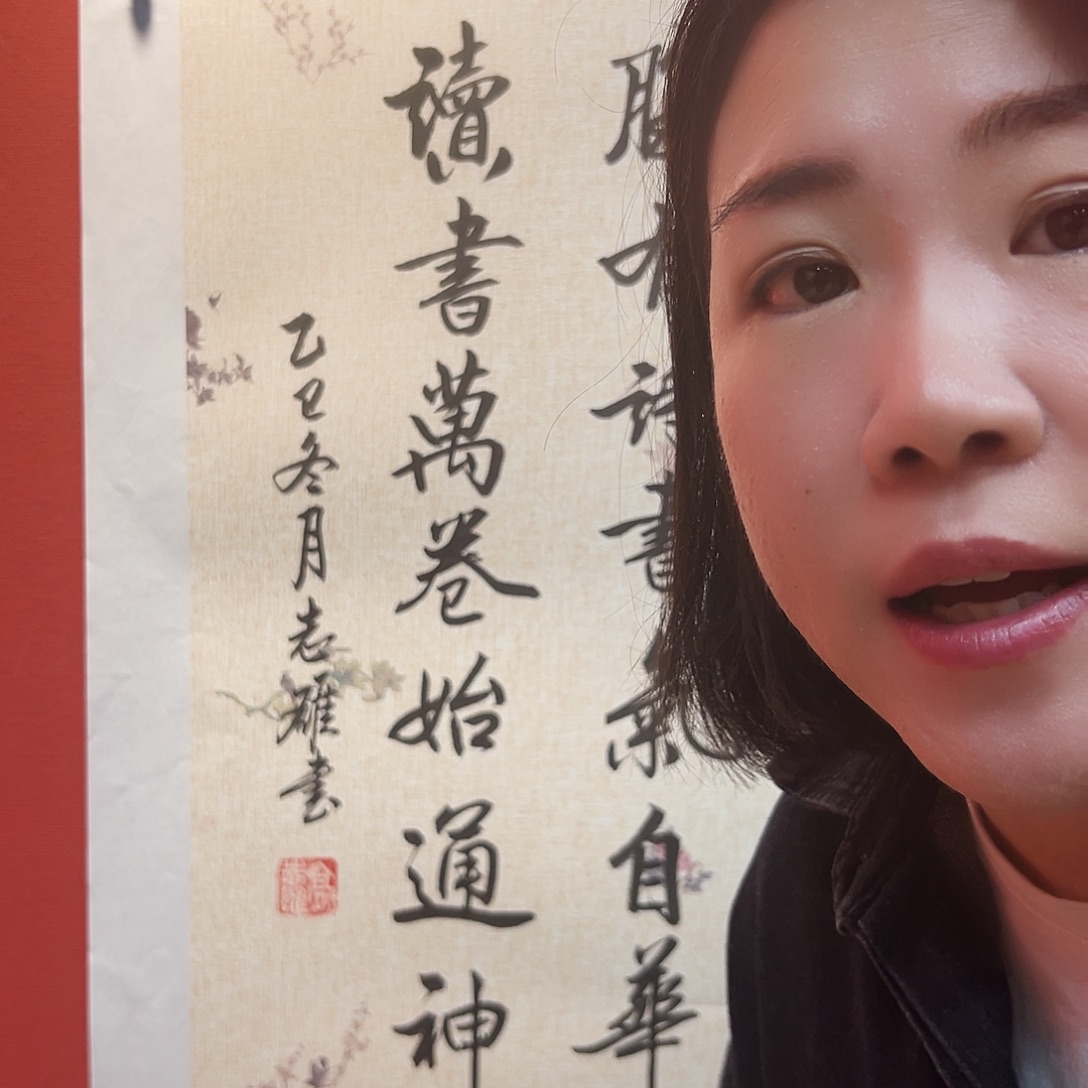 腹有詩書氣自華
讀書萬卷始通神
乙巳冬月志雄書